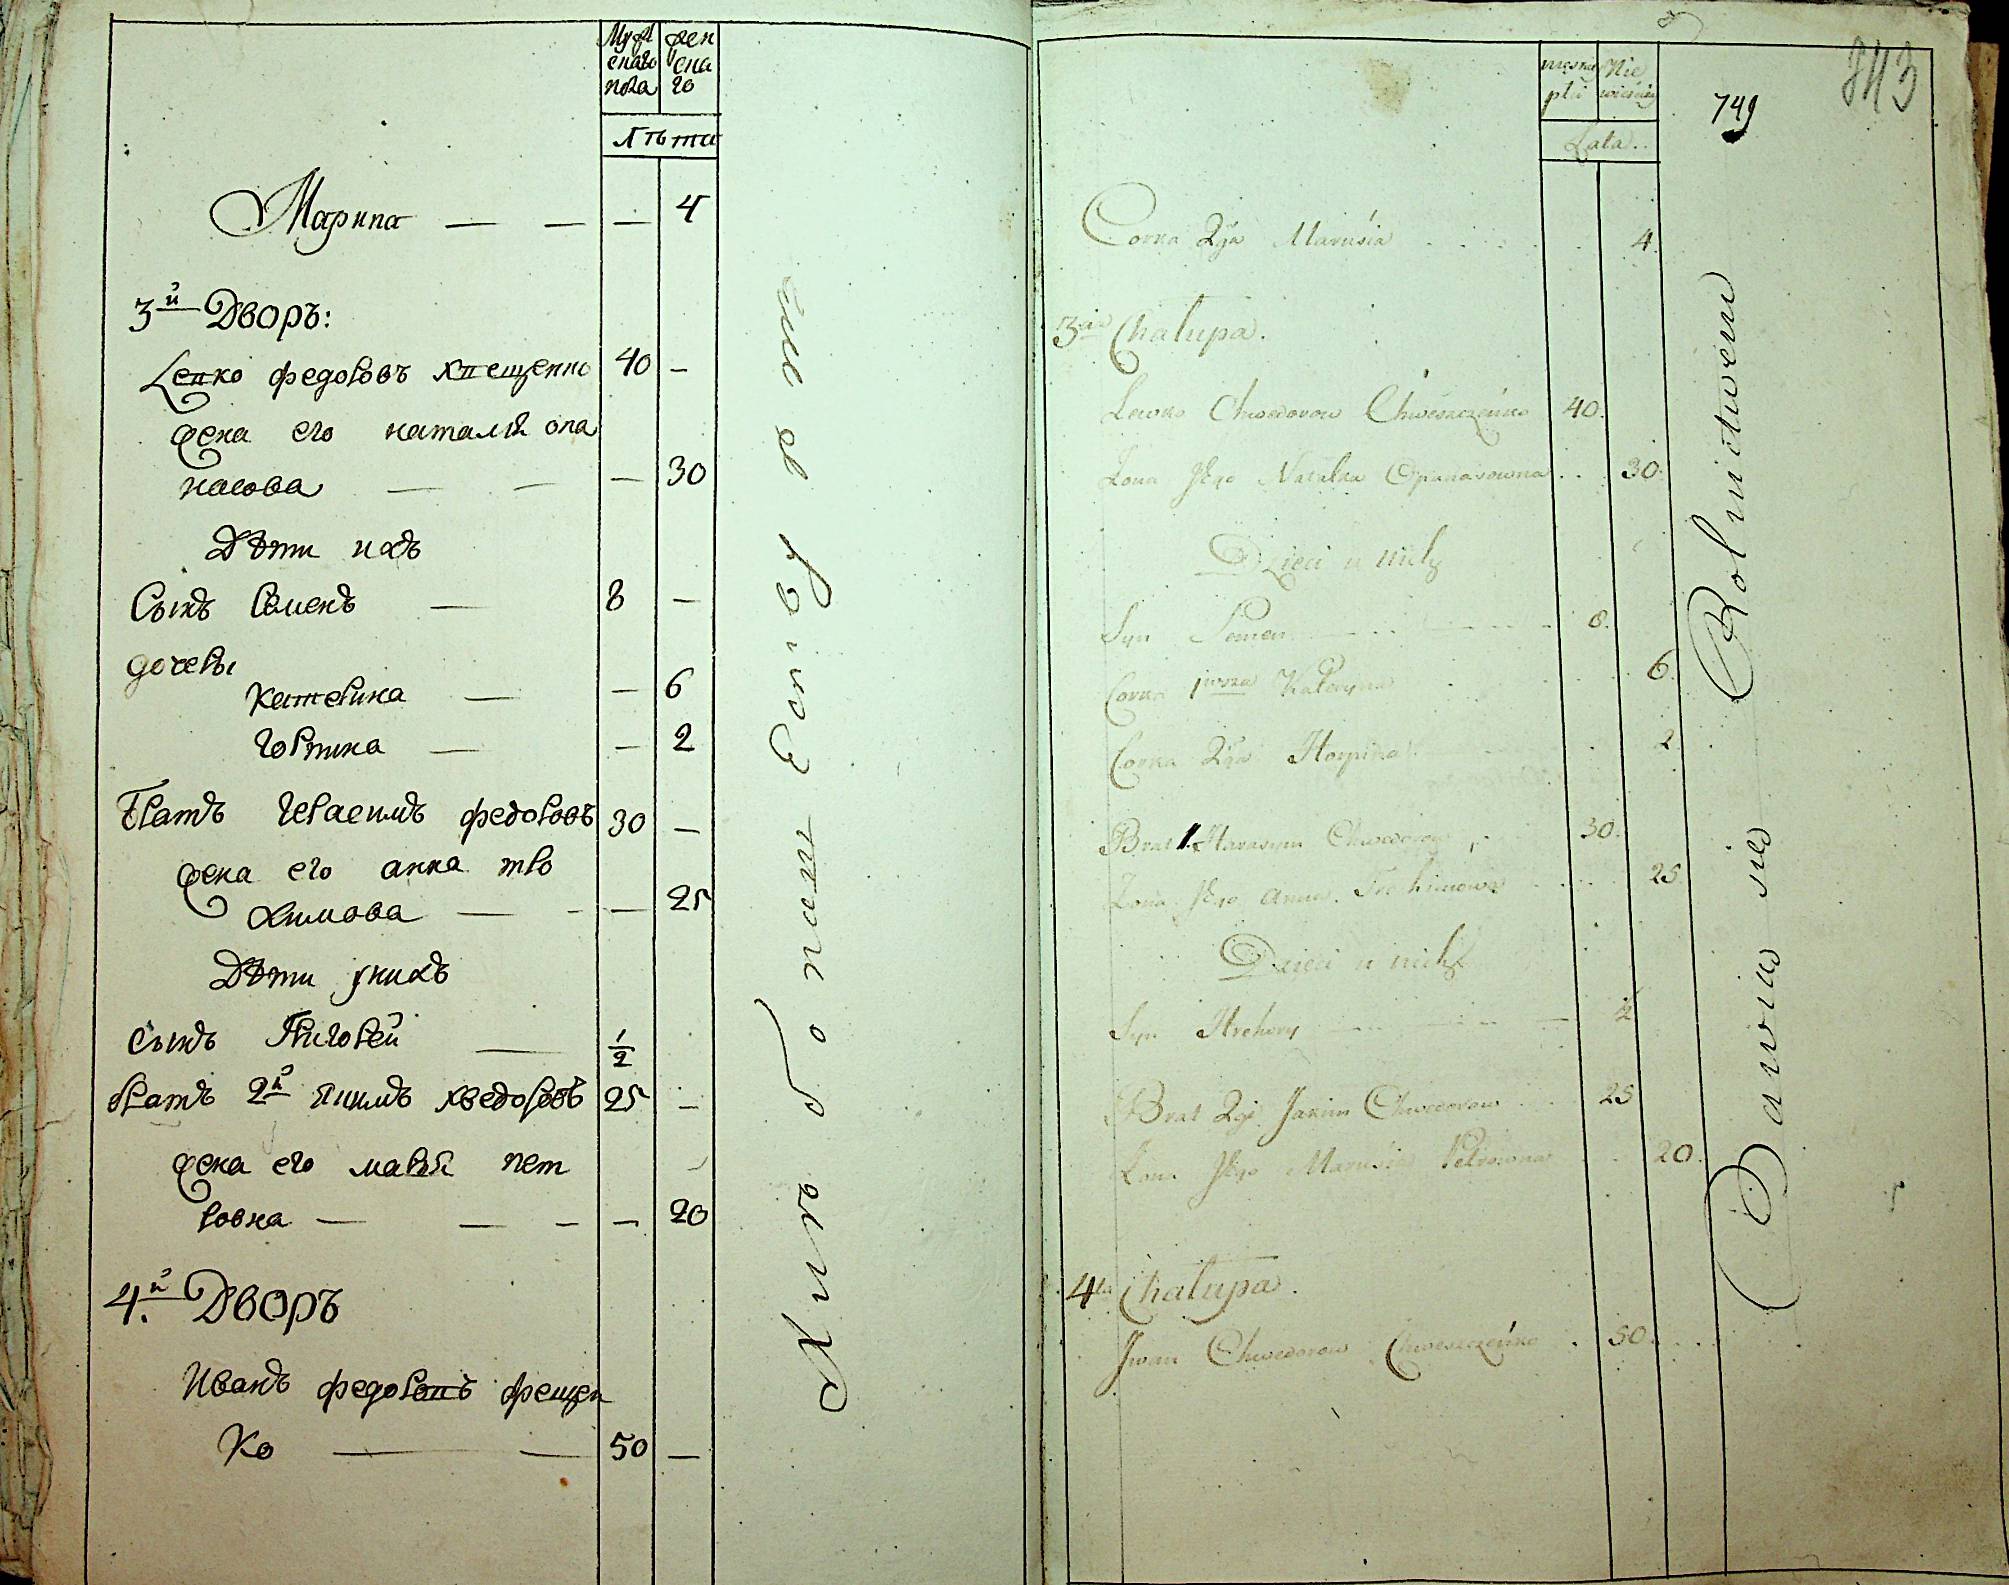 Мужескаго пола
женскаго
Лѣта
Марина — — — 4
3й Дворъ:
Левко федоровъ хвещенко 40 —
жена его наталія опа
насова — — — 30
Дѣти ихъ
Сынъ Семенъ — 8 —
дочеры
Катерина — — 6
Горпина — — 2
Братъ Герасимъ федоровъ 30 —
жена его анна тро
химова — - — 25
Дѣти у нихъ
Сынъ Григорей — 1/2
братъ 2й Якимъ хведоровъ 25 —
жена его марья пет
ровна — — — — 20
4й Дворъ
Иванъ федоровъ фещен
ко — — 50 —
Хлѣбопашествуетъ
męskiey płci
Nie wieściey
Lata..
749
843
Corka 2ga Marusia 4.
3cia Chałupa.
Lewko Chwedorow Chweszczeńko 40.
Żona Jego Natalka Opanasowna .. 30.
Dzieci u nich
Syn Semen 8.
Corka 1wsza Kateryna 6.
Corka 2ga Horpina 2.
Brat 1. Harasym Chwedorow 30.
Żona Jego Anna Trochimowa 25.
Dzieci u nich
Syn Hrehory — 1/2
Brat 2gi Jakim Chwedorow 25
Żona Jego Marusia Petrowna 20.
4ta Chałupa.
Jwan Chwedorow Chweszczeńko . 50.
Bawia sie Rolnictwem